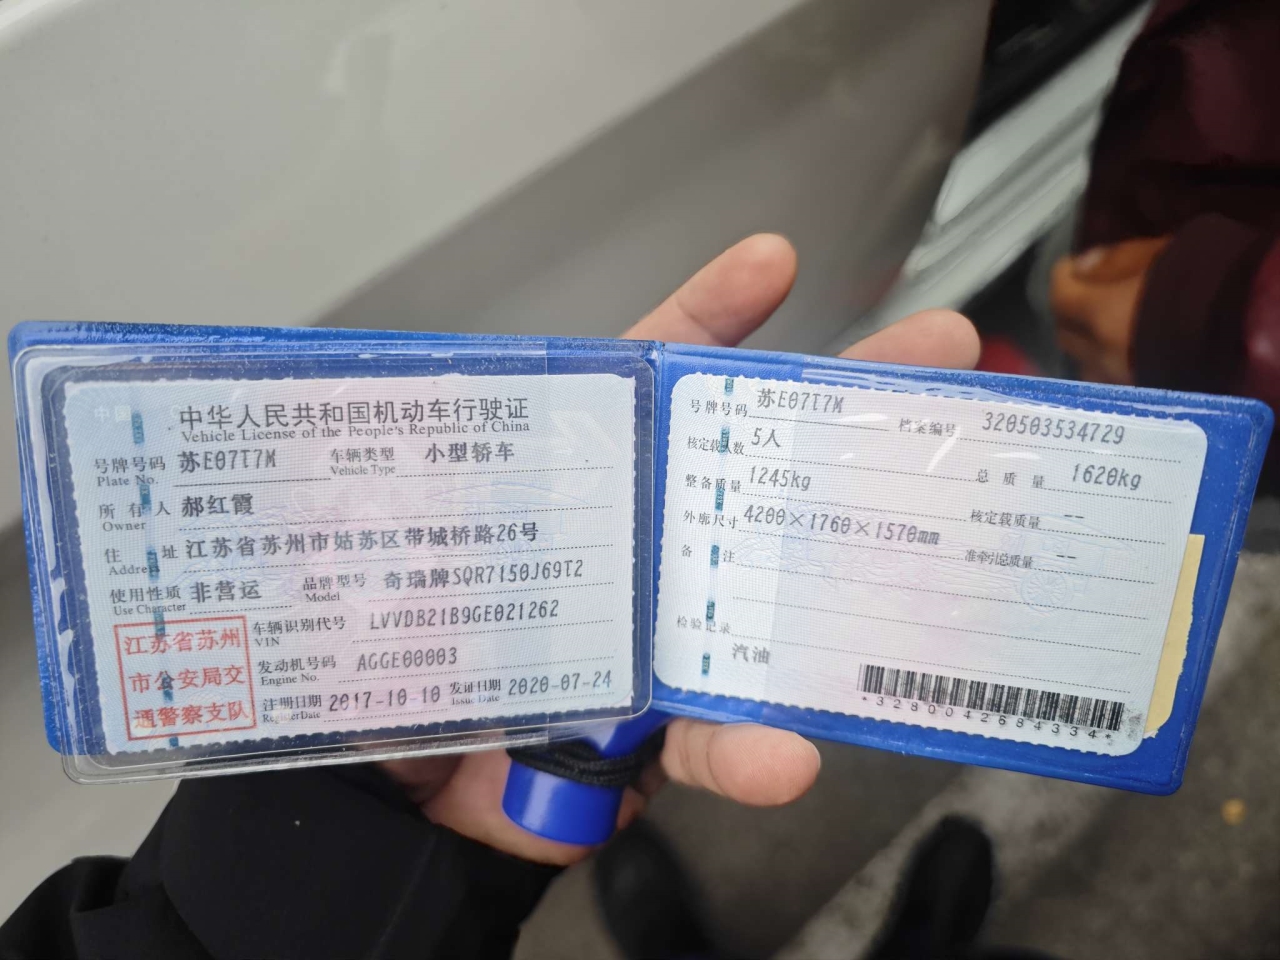 中华人民共和国机动车行驶证
Vehicle License of the People's Republic of China
号牌号码 苏E07T7M 车辆类型 小型轿车
Plate No. Vehicle Type
所有人 郝红霞
Owner
住址 江苏省苏州市姑苏区带城桥路26号
Address
使用性质 非营运 品牌型号 奇瑞牌SQR7150J69T2
Use Character Model
江苏省苏州
市公安局交
通警察支队
车辆识别代号 LVVDB21B9GE021262
VIN
发动机号码 AGGE00003
Engine No.
注册日期 2017-10-10 发证日期 2020-07-24
Register Date Issue Date
号牌号码 苏E07T7M 档案编号 320503534729
核定载人数 5人 总质量 1620kg
整备质量 1245kg 核定载质量 --
外廓尺寸 4200×1760×1570mm 准牵引总质量 --
备注
检验记录
汽油
*3280042684334*